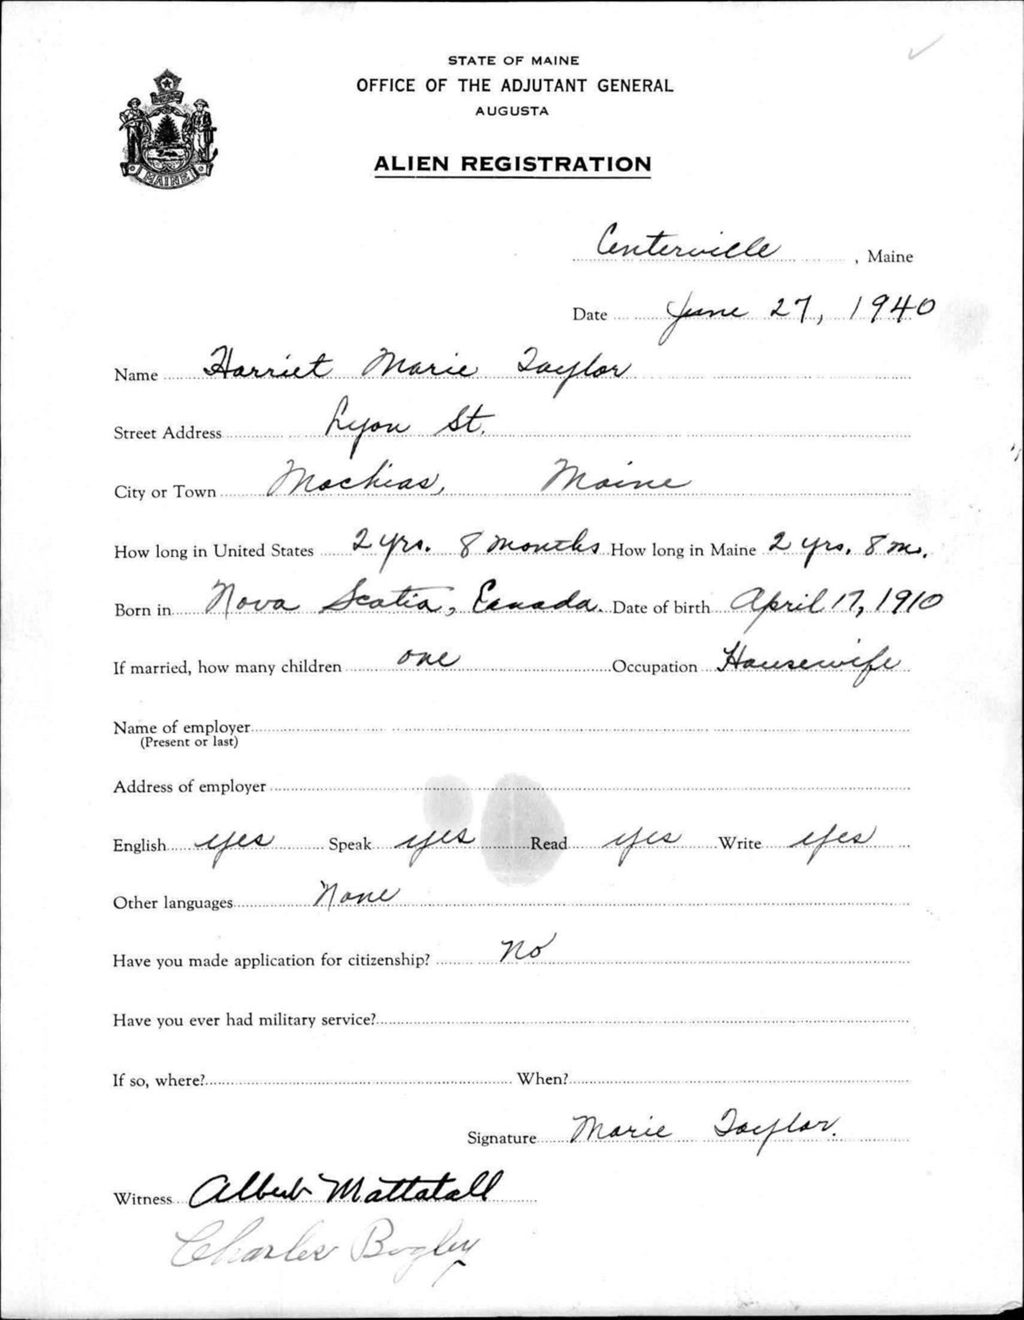 STATE OF MAINE
OFFICE OF THE ADJUTANT GENERAL
AUGUSTA
ALIEN REGISTRATION
MAINE
Centerville, Maine
Date June 27, 1940
Name Harriet Marie Taylor
Street Address Lyon St.
City or Town Machias, Maine
How long in United States 2 yrs. 8 months How long in Maine 2 yrs. 8 m.
Born in Nova Scotia, Canada. Date of birth April 17, 1910
If married, how many children one Occupation Housewife
Name of employer
(Present or last)
Address of employer
English yes Speak yes Read yes Write yes
Other languages None
Have you made application for citizenship? No
Have you ever had military service?
If so, where? When?
Signature Marie Taylor.
Witness Albert Mattatall
Charles Bagley